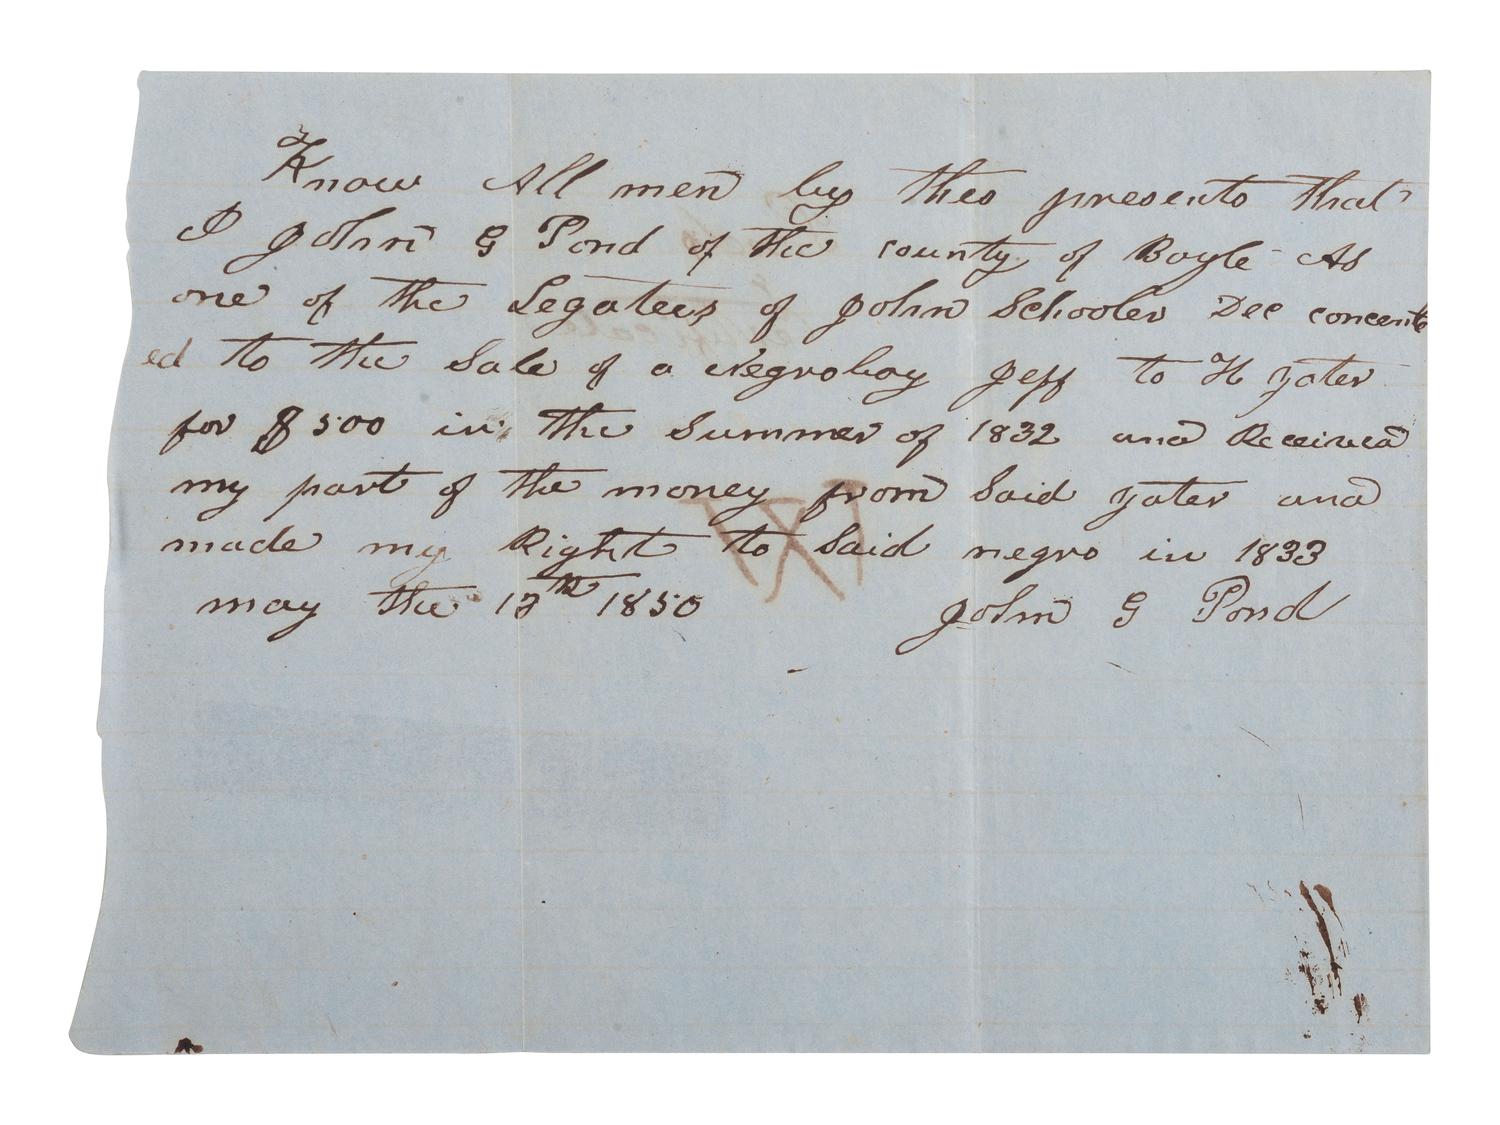 Know All men by thes presents that
I John G Pond of the county of Boyle As
one of the Legatees of John Schooler Dec concent
ed to the Sale of a Negro boy Jeff to H Yater
for $500 in the Summer of 1832 and Received
my part of the money from Said Yater and
made my Right to Said negro in 1833
may the th 1850 John G Pond